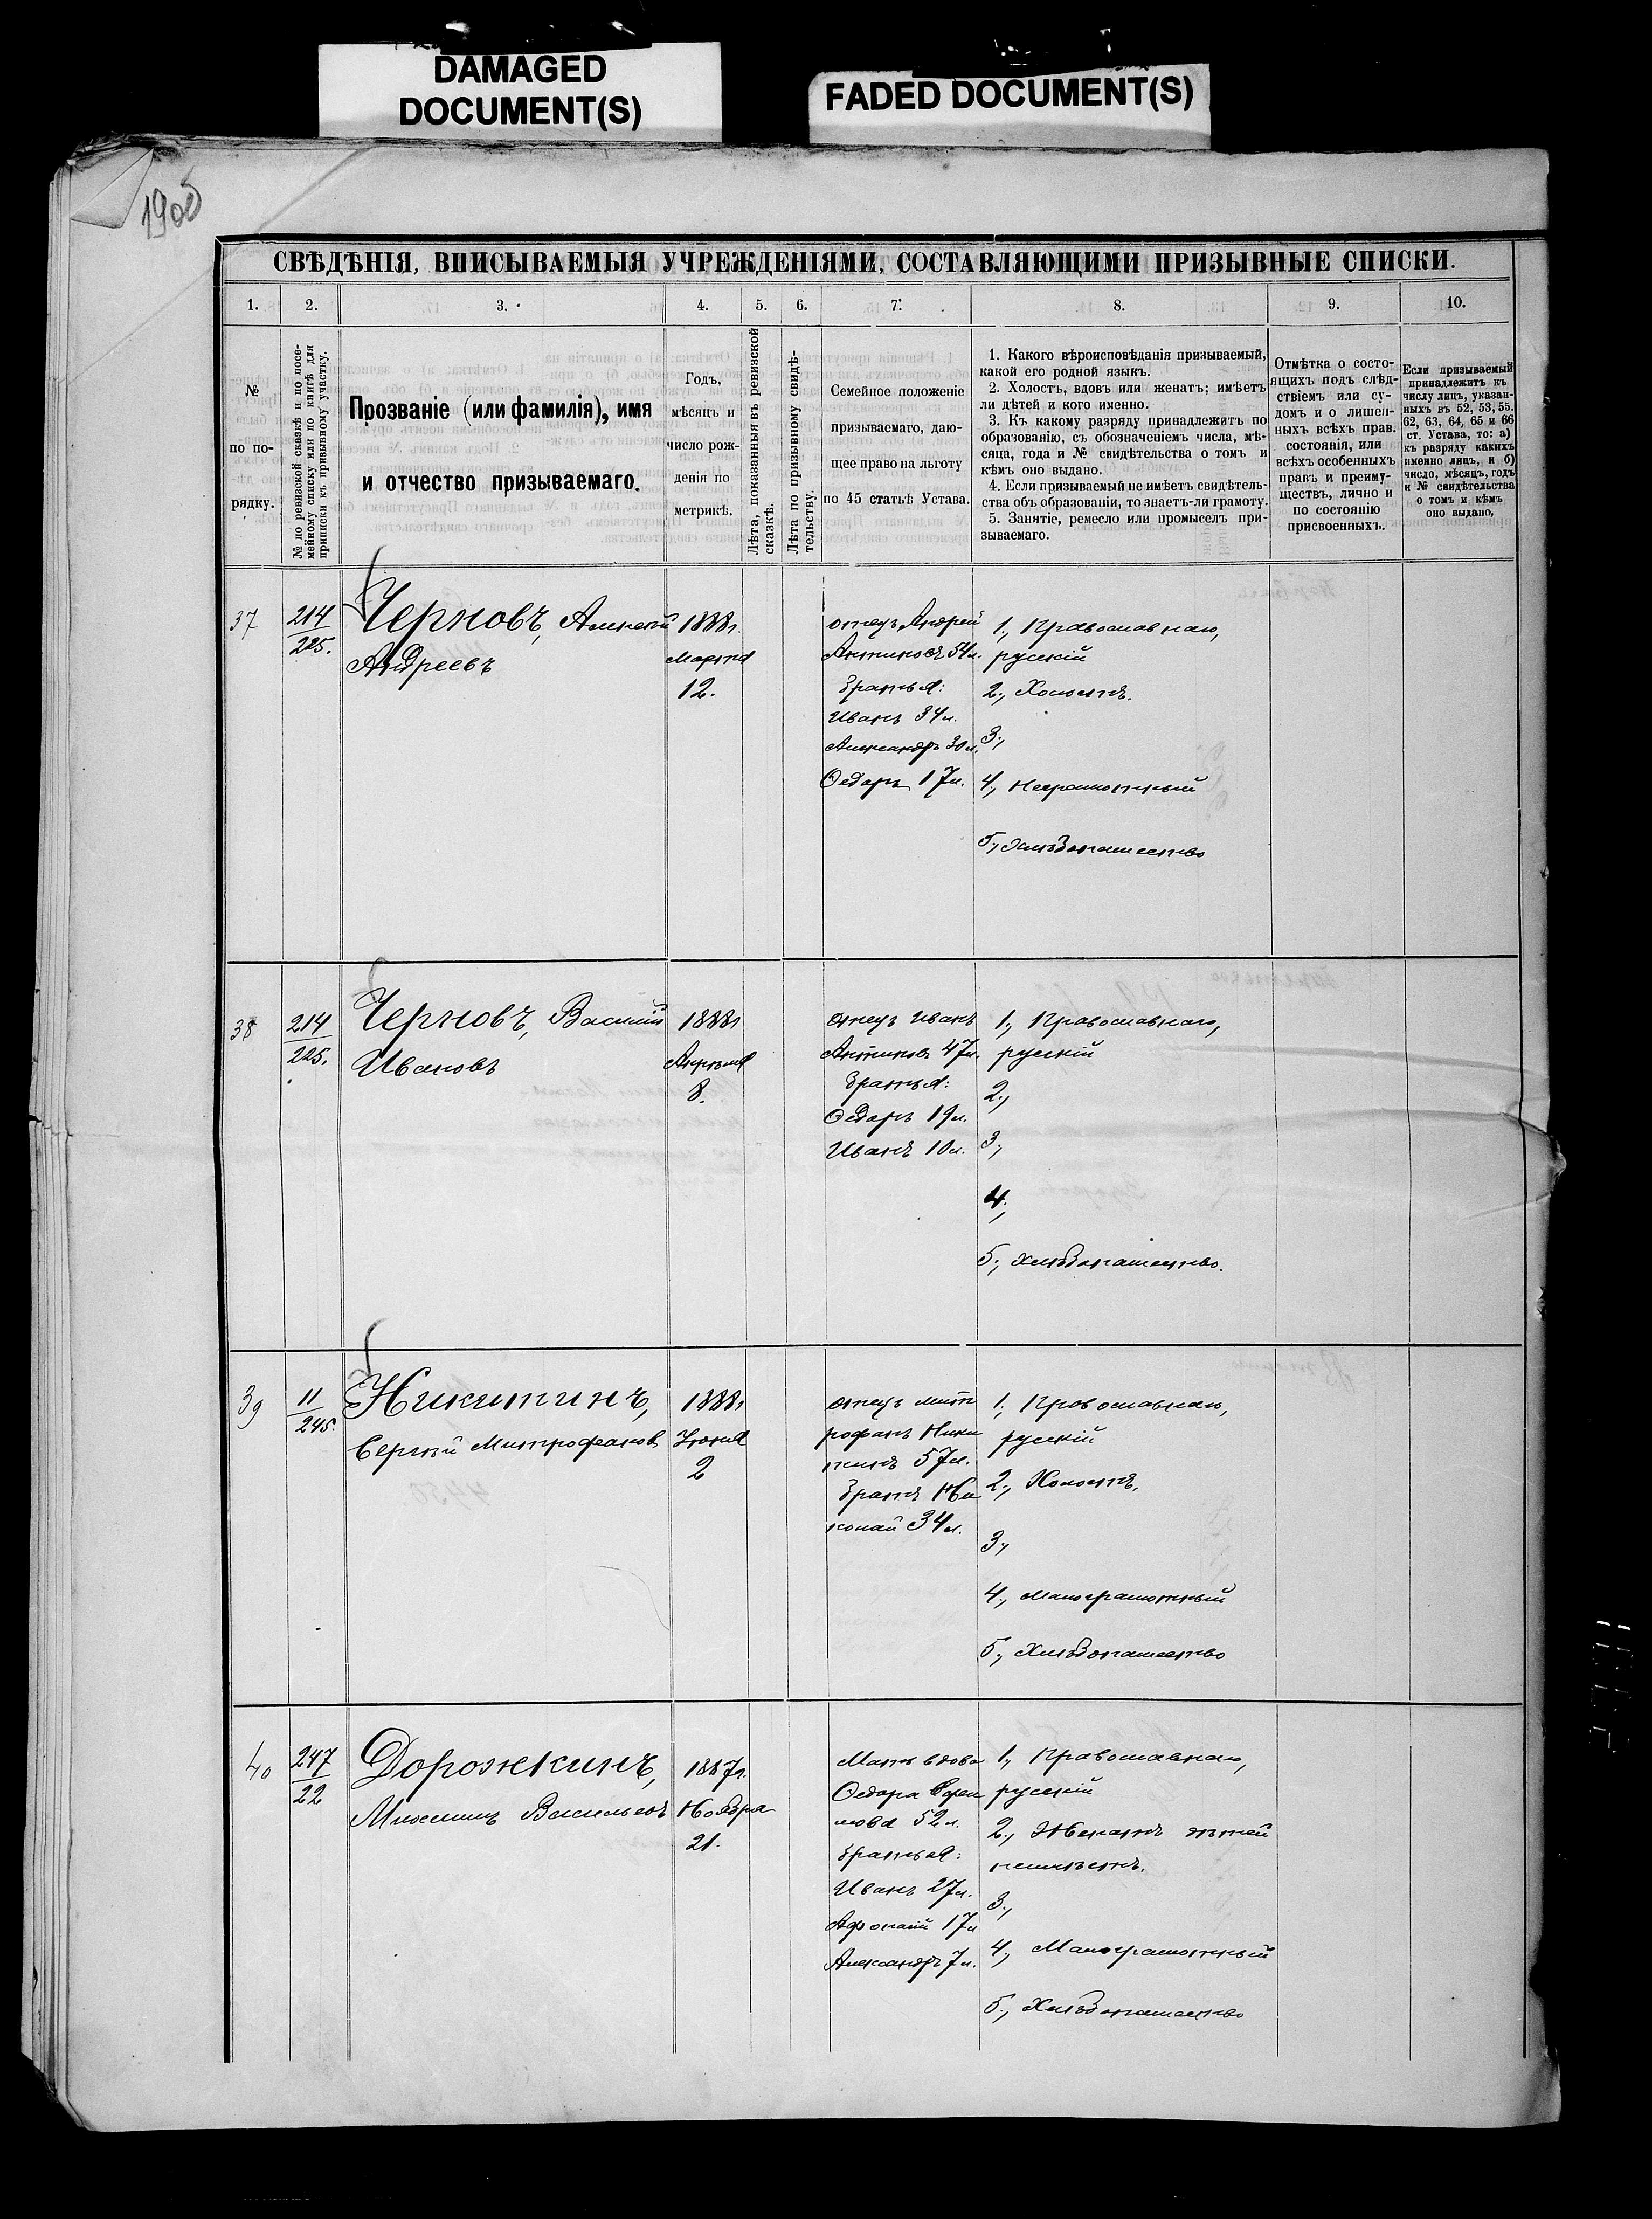 DAMAGED
DOCUMENT(S)
FADED DOCUMENT(S)
СВѢДѢНІЯ, ВПИСЫВАЕМЫЯ УЧРЕЖДЕНІЯМИ, СОСТАВЛЯЮЩИМИ ПРИЗЫВНЫЕ СПИСКИ.
1. 2. 3. 4. 5. 6. 7. 8. 9. 10.
№
по по-
рядку.
№ по ревизской сказкѣ и по посе-
мейному списку или по книгѣ для
приписки къ призывному участку.
Прозваніе (или фамилія), имя
и отчество призываемаго.
Годъ,
мѣсяцъ и
число рож-
денія по
метрикѣ.
Лѣта, показанныя въ ревизской
сказкѣ.
Лѣта по призывному свидѣ-
тельству.
Семейное положеніе
призываемаго, даю-
щее право на льготу
по 45 статьѣ Устава.
1. Какого вѣроисповѣданія призываемый,
какой его родной языкъ.
2. Холостъ, вдовъ или женатъ; имѣетъ
ли дѣтей и кого именно.
3. Къ какому разряду принадлежитъ по
образованію, съ обозначеніемъ числа, мѣ-
сяца, года и № свидѣтельства о томъ и
кѣмъ оно выдано.
4. Если призываемый не имѣетъ свидѣтель-
ства объ образованіи, то знаетъ-ли грамоту.
5. Занятіе, ремесло или промыселъ при-
зываемаго.
Отмѣтка о состо-
ящихъ подъ слѣд-
ствіемъ или су-
домъ и о лишен-
ныхъ всѣхъ прав.
состоянія, или
всѣхъ особенныхъ
правъ и преиму-
ществъ, лично и
по состоянію
присвоенныхъ.
Если призываемый
принадлежитъ къ
числу лицъ, указан-
ныхъ въ 52, 53, 55.
62, 63, 64, 65 и 66
ст. Устава, то: а)
къ разряду какихъ
именно лицъ, и б)
число, мѣсяцъ, годъ
и № свидѣтельства
о томъ и кѣмъ
оно выдано,
37
214
225.
Черновъ, Алексѣй
Андреевъ
1888г.
Марта
12.
отецъ Андрей
Антиповъ 54л.
братья:
Иванъ 34л.
Александръ 30л.
Ѳедоръ 17л.
1., Православнаго,
русскій
2., Холостъ.
3.,
4., Неграмотный
5., Хлѣбопашество
38
214
225.
Черновъ, Василій
Ивановъ
1888г
Апрѣля
8.
отецъ Иванъ
Антиповъ 47л.
братья:
Ѳедоръ 19л.
Иванъ 10л.
1., Православнаго,
русскій
2.,
3.,
4.,
5., Хлѣбопашество.
39
11
245.
Никитинъ,
Сергѣй Митрофановъ
1888г
Іюня
2
отецъ Мит
рофанъ Ники
тинъ 57л.
братъ Ни
колай 34л.
1., Православнаго,
русскій
2., Холостъ,
3.,
4., Малограмотный
5., Хлѣбопашество
40
247
22
Дорожкинъ,
Васильевъ
1887г.
Ноября
21.
Мать вдова
Ѳедора Ефи
мова 52л.
братья:
Иванъ 27л.
Афонасій 17л
Александръ 7л.
1., Православнаго,
русскій
2., Женатъ дѣтей
неимѣетъ.
3.,
4., Малограмотный
5., Хлѣбопашество